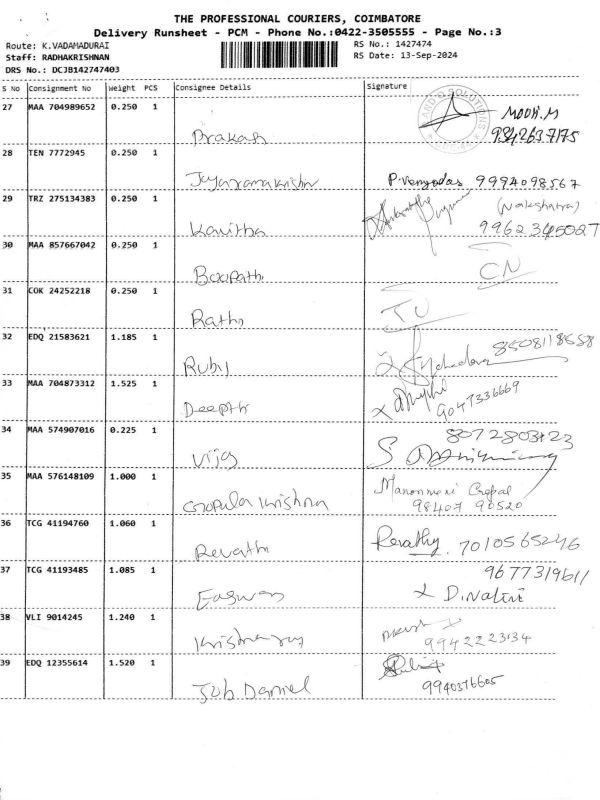 THE PROFESSIONAL COURIERS, COIMBATORE
Delivery Runsheet - PCM - Phone No.:0422-3505555 - Page No.:3
Route: K.VADAMADURAI RS No.: 1427474
Staff: RADHAKRISHNAN RS Date: 13-Sep-2024
DRS No.: DCJB142747403
S No Consignment No Weight PCS Consignee Details Signature
27 MAA 704989652 0.250 1
Prakash 9842637175
28 TEN 7772945 0.250 1
Jayaramakrishn P.Venyodas 9994098567
29 TRZ 275134383 0.250 1
Kavitha (Nakshatra)
9962345027
30 MAA 857667042 0.250 1
Boopathi CN
31 COK 24252218 0.250 1
Rathi
32 EDQ 21583621 1.185 1
Rubil 8508118558
33 MAA 704873312 1.525 1
Deepthi 9047336669
34 MAA 574907016 0.225 1
Vijay
35 MAA 576148109 1.000 1
Gopala Krishna Manonmani Gopal
98407 90520
36 TCG 41194760 1.060 1
Revathi Revathy. 7010565246
37 TCG 41193485 1.085 1 9677319611
Easwan X D.Nalini
38 VLI 9014245 1.240 1
Krishnaraj 9942223134
39 EDQ 12355614 1.520 1
Job Daniel 9940376605